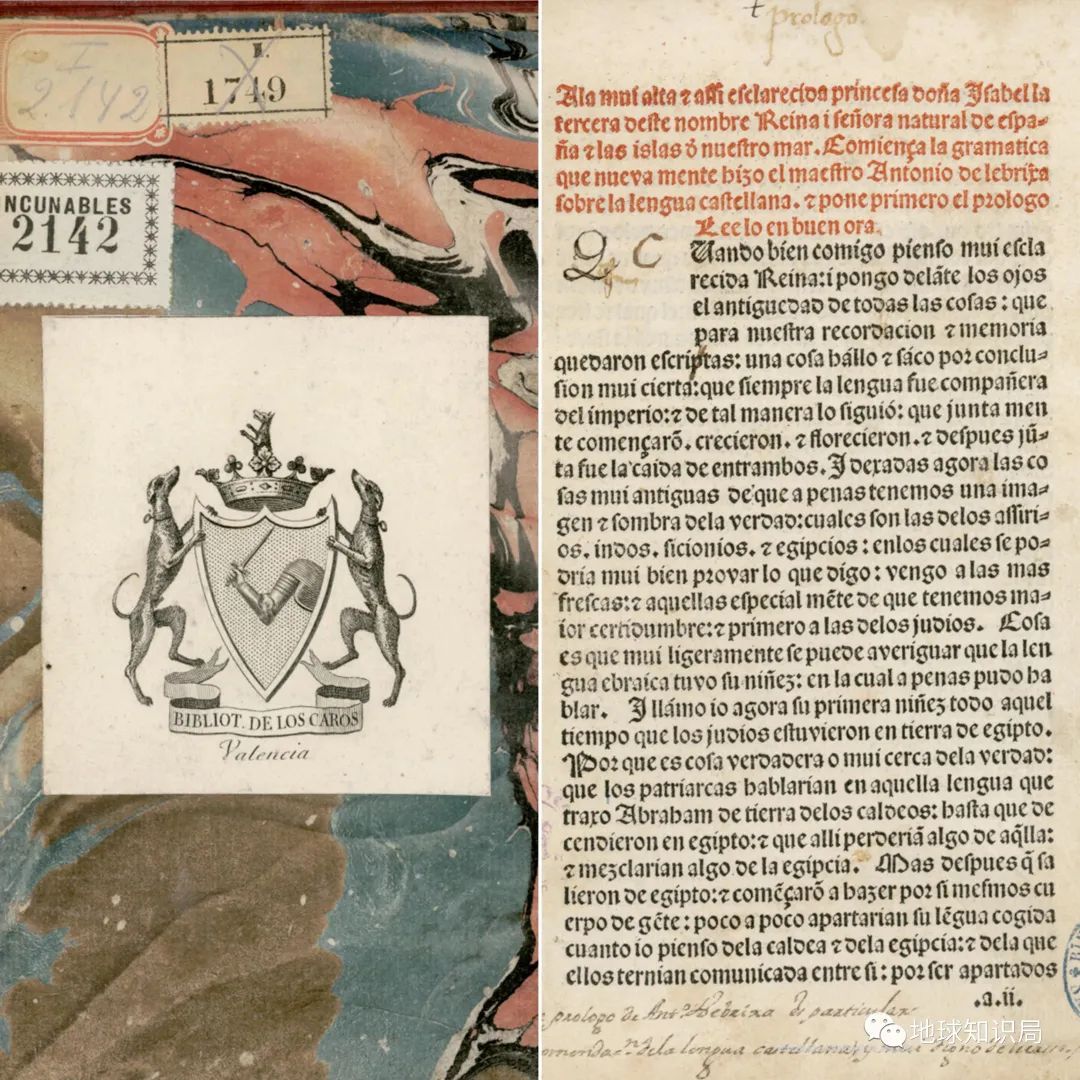 I
2.142
II.
1749
NCUNABLES
2142
BIBLIOT. DE LOS CAROS
Valencia
prologo
A la mui alta ⁊ assi esclarecida princesa doña Isabel la
tercera deste nombre Reina i señora natural de espa-
ña ⁊ las islas đ nuestro mar. Comiença la gramatica
que nueva mente hizo el maestro Antonio de lebrixa
sobre la lengua castellana. ⁊ pone primero el prologo
Lee lo en buen ora.
Q C Uando bien comigo pienso mui escla
recida Reina: i pongo delãte los ojos
el antiguedad de todas las cosas: que
para nuestra recordacion ⁊ memoria
quedaron escriptas: una cosa hállo ⁊ sáco por conclu-
sion mui cierta: que siempre la lengua fue compañera
del imperio: ⁊ de tal manera lo siguió: que junta men
te començarõ. crecieron. ⁊ florecieron. ⁊ despues jũ-
ta fue la caida de entrambos. I dexadas agora las co
sas mui antiguas de que a penas tenemos una ima-
gen ⁊ sombra dela verdad: cuales son las delos assiri-
os. indos. sicionios. ⁊ egipcios: enlos cuales se po-
dria mui bien provar lo que digo: vengo a las mas
frescas: ⁊ aquellas especial mẽte de que tenemos ma-
ior certidumbre: ⁊ primero a las delos judios. Cosa
es que mui ligeramente se puede averiguar que la len
gua ebraica tuvo su niñez: en la cual a penas pudo ha
blar. I llámo io agora su primera niñez todo aquel
tiempo que los judios estuvieron en tierra de egipto.
Por que es cosa verdadera o mui cerca dela verdad:
que los patriarcas hablarian en aquella lengua que
traxo Abraham de tierra delos caldeos: hasta que de
cendieron en egipto: ⁊ que alli perderiã algo de aq̃lla:
⁊ mezclarian algo de la egipcia. Mas despues q̃ sa
lieron de egipto: ⁊ comẽçarõ a hazer por si mesmos cu
erpo de gẽte: poco a poco apartarian su lẽgua cogida
cuanto io pienso dela caldea ⁊ dela egipcia: ⁊ dela que
ellos ternian comunicada entre si: por ser apartados
.a.ii.
prologo de Antº Nebrixa
de la lengua castellana
地球知识局